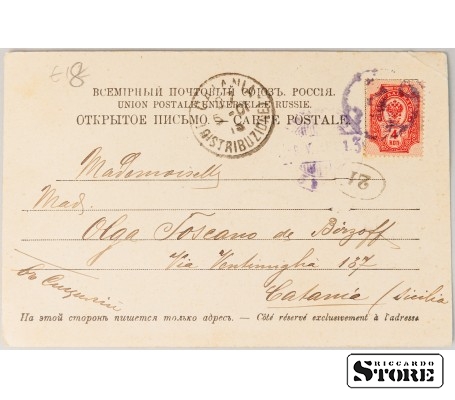 £18
ВСЕМІРНЫЙ ПОЧТОВЫЙ СОЮЗЪ. РОССІЯ.
UNION POSTALE UNIVERSELLE. RUSSIE.
ОТКРЫТОЕ ПИСЬМО. — CARTE POSTALE.
CATANIA
DISTRIBUZIONE
4
КОП
21
Mademoiselle
Mad.
Olga Toscano de Birzoff
Via Ventimiglia 137
въ Сицилію
Catania / Sicilia
На этой сторонѣ пишется только адресъ. — Côté réservé exclusivement à l'adresse
RICCARDO
STORE